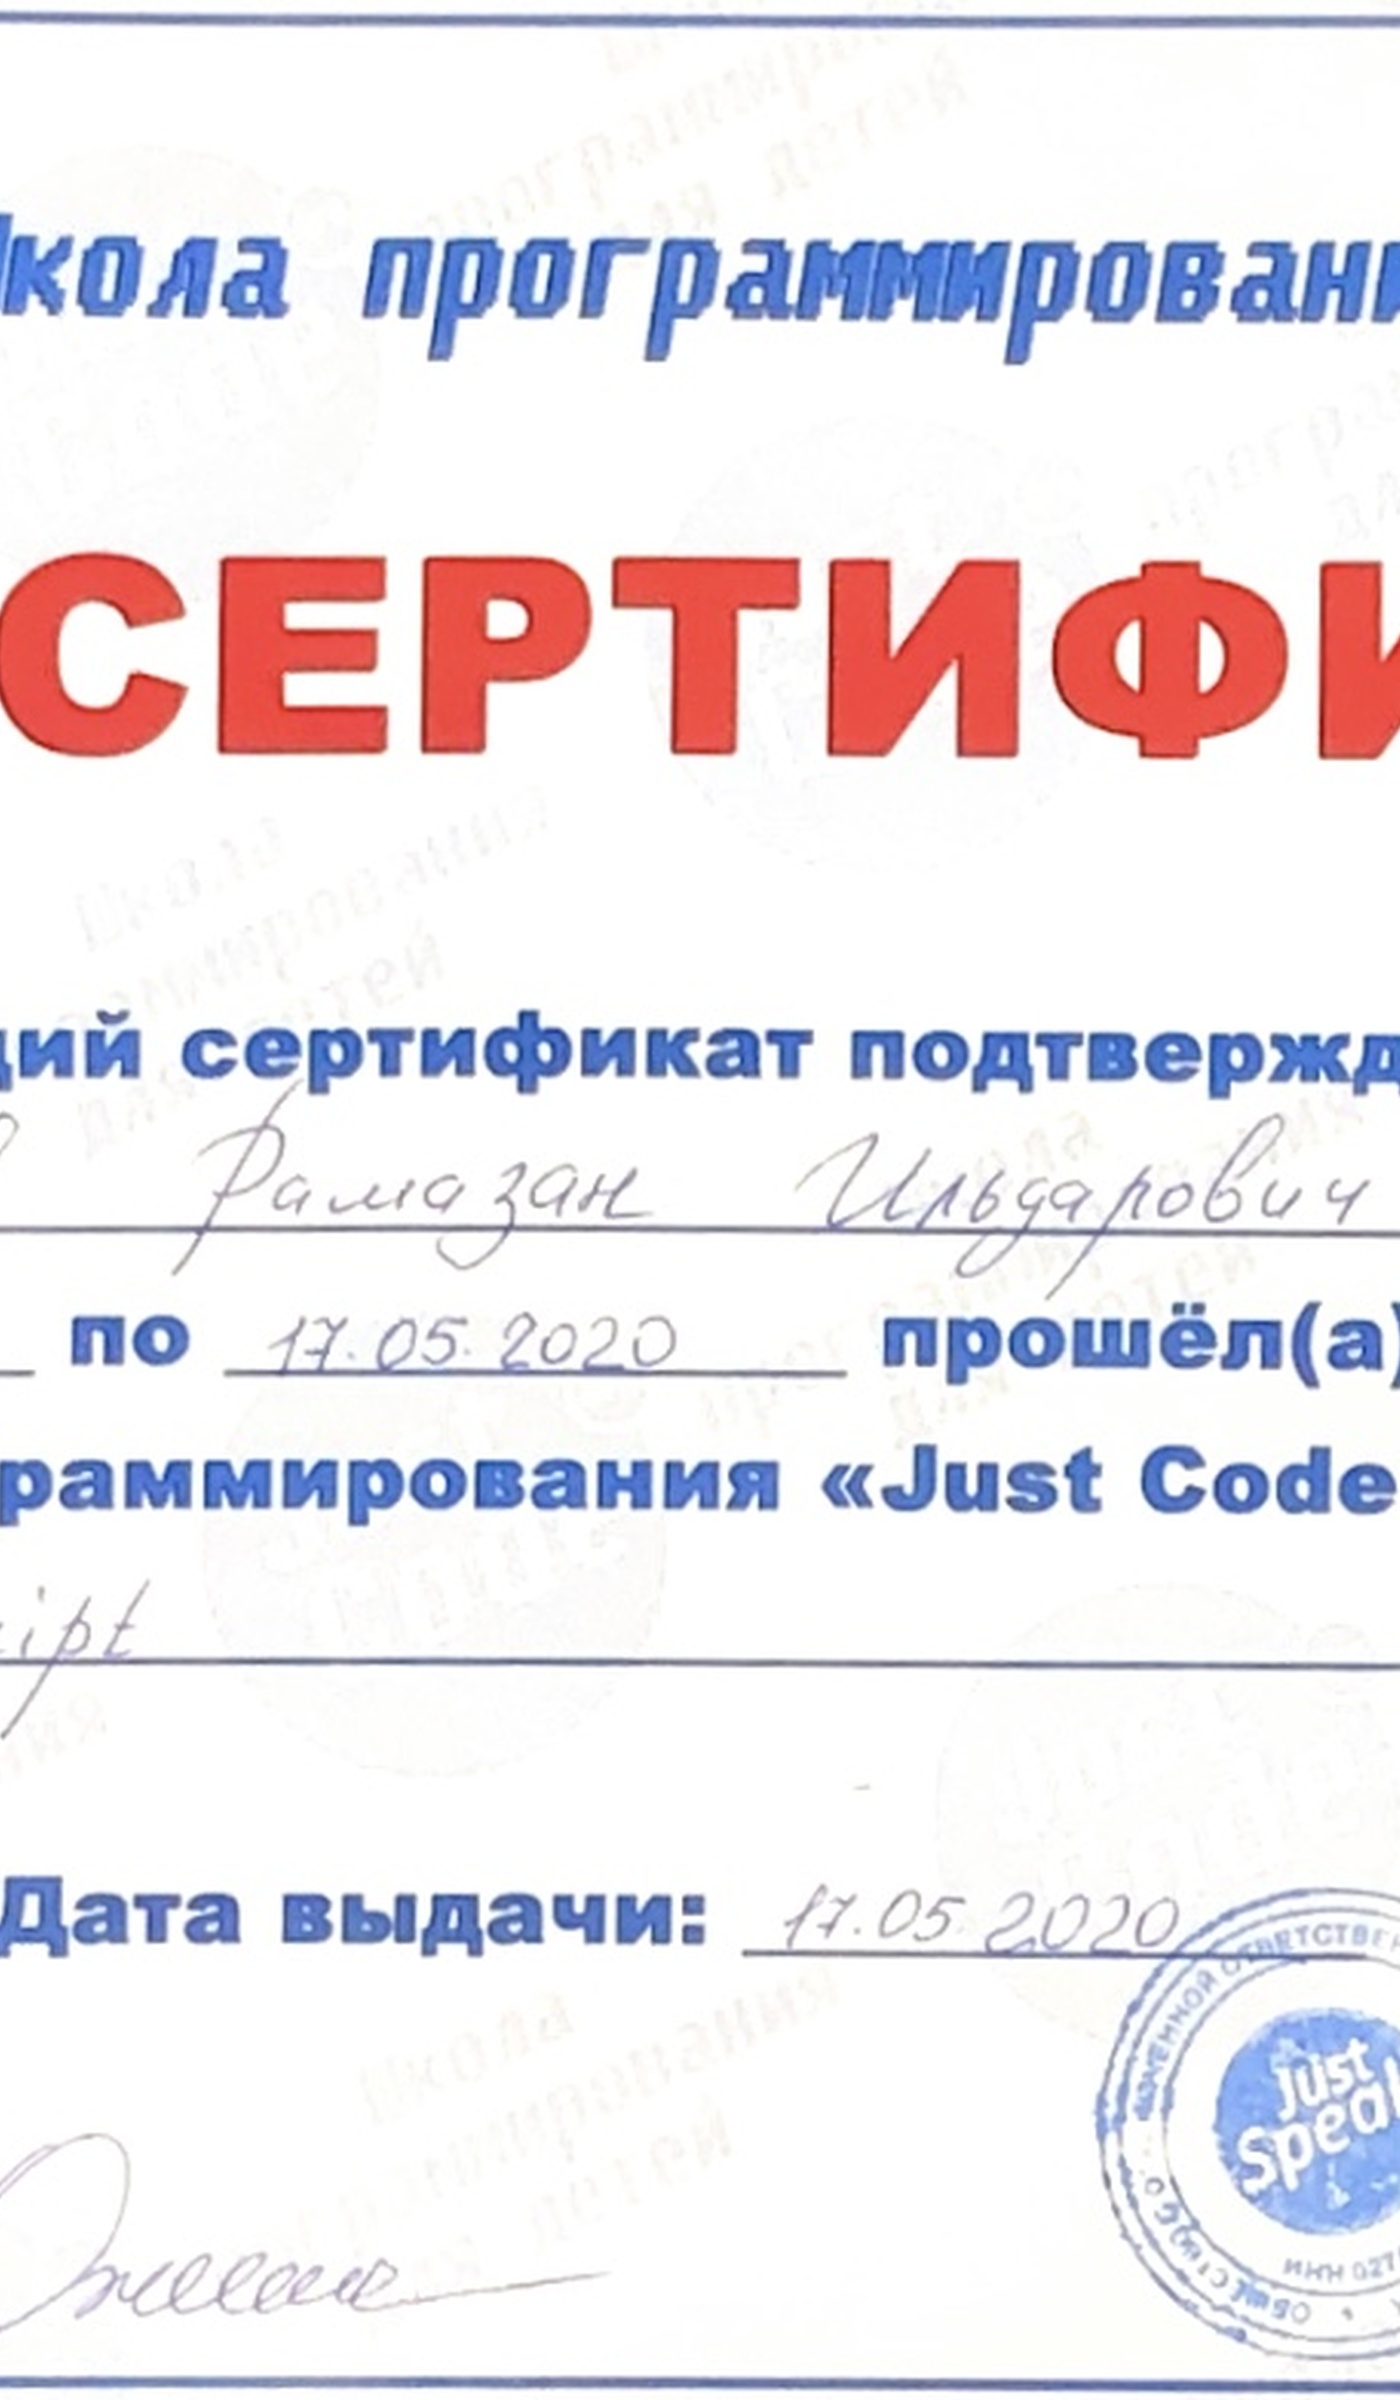 кола программирован
СЕРТИФИ
ций сертификат подтвержд
Рамазан Ильдарович
по 17.05.2020 прошёл(а)
раммирования «Just Code
ript
Дата выдачи: 17.05.2020
Just
Speak
ИНН 027